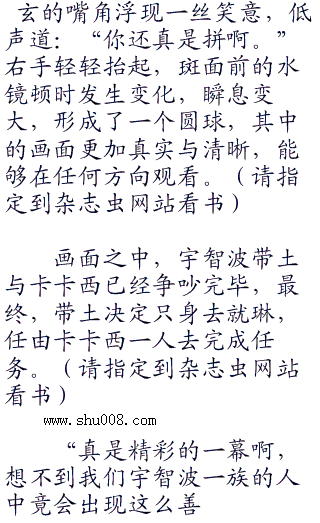 玄的嘴角浮现一丝笑意，低
声道：“你还真是拼啊。”
右手轻轻抬起，斑面前的水
镜顿时发生变化，瞬息变
大，形成了一个圆球，其中
的画面更加真实与清晰，能
够在任何方向观看。（请指
定到杂志虫网站看书）
画面之中，宇智波带土
与卡卡西已经争吵完毕，最
终，带土决定只身去就琳，
任由卡卡西一人去完成任
务。（请指定到杂志虫网站
看书）
www.shu008.com
“真是精彩的一幕啊，
想不到我们宇智波一族的人
中竟会出现这么善